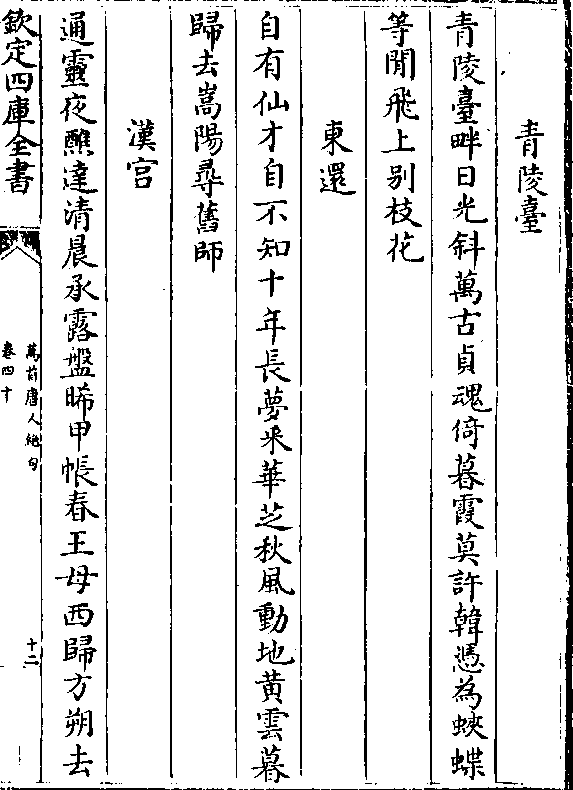 青陵臺
青陵臺畔日光斜萬古貞魂倚暮霞莫許韓憑為蛺蝶
等閒飛上别枝花
東還
自有仙才自不知十年長夢采華芝秋風動地黄雲暮
歸去嵩陽尋舊師
漢宫
通靈夜醮達清晨承露盤晞甲帳春王母西歸方朔去
欽定四庫全書
萬首唐人絶句
卷四十
十二